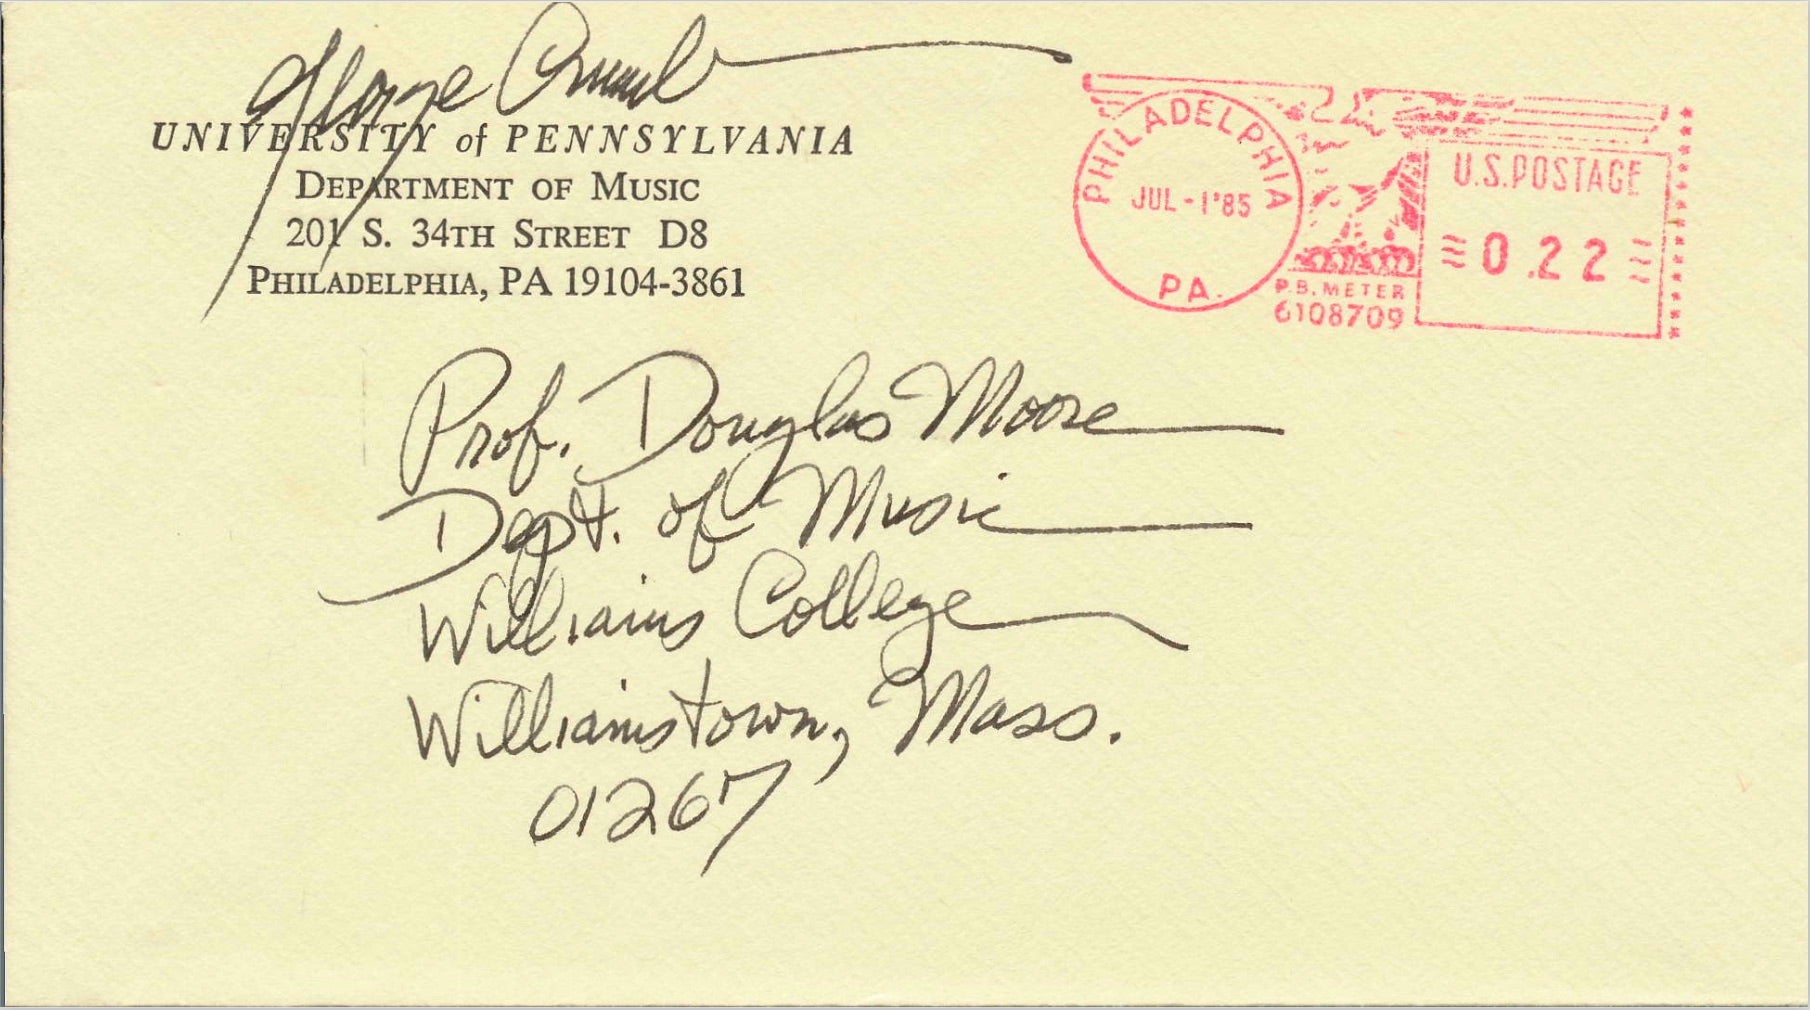 George Crumb
UNIVERSITY of PENNSYLVANIA
DEPARTMENT OF MUSIC
201 S. 34TH STREET D8
PHILADELPHIA, PA 19104-3861
PHILADELPHIA
JUL-1'85
PA.
P.B. METER
6108709
U.S. POSTAGE
0.22
Prof. Douglas Moore
Dept. of Music
Williams College
Williamstown, Mass.
01267